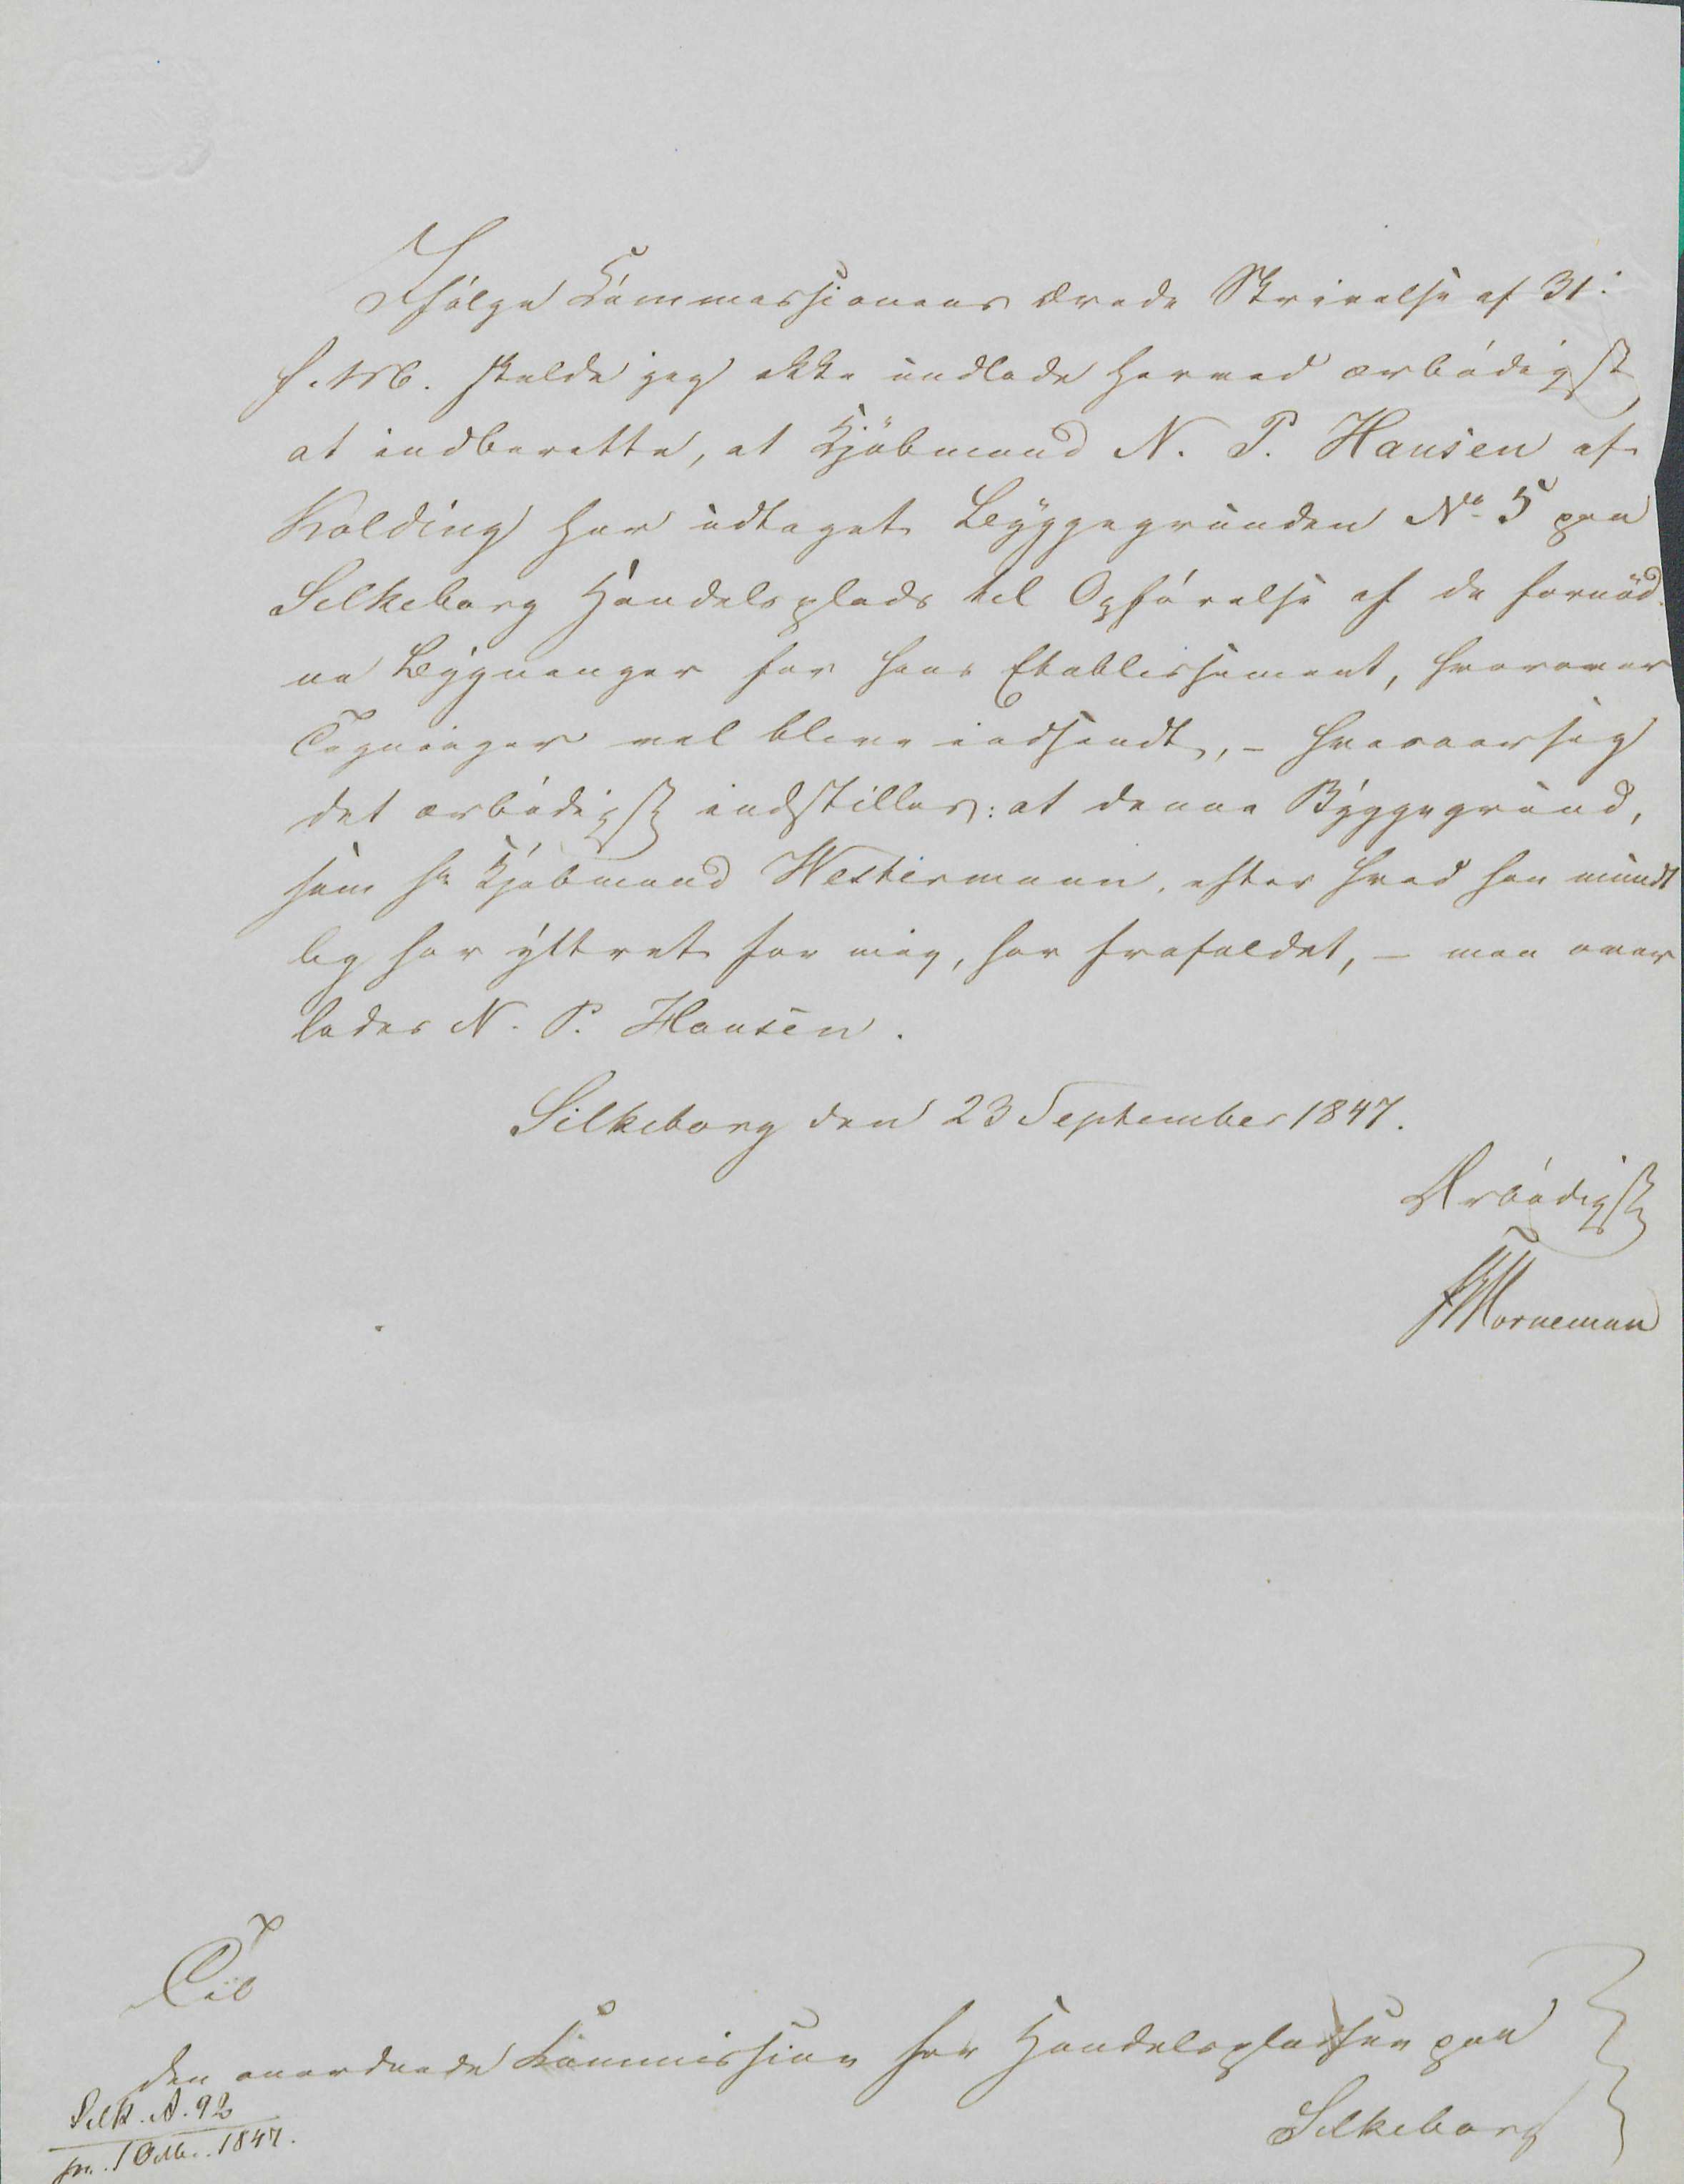 Ifölge Commissionens ærede Skrivelse af 31.
f. Mb. skulde jeg ikke undlade herved ærbödigst
at indberette, at Kjöbmand N. P. Hansen af
Kolding har udtaget Byggegrunden No 5 paa
Silkeborg Handelsplads til Opförelse af de fornöd-
ne Bygninger for hans Etablissement, hvorover
Tegninger vil blive indsendt, –
det ærbödigst indstilles: at denne Byggegrund,
som Hr Kjöbmand Westermann, efter hvad han mundt
lig har yttret for mig, har frafaldet, – maa over
lades N. P. Hansen.
Silkeborg den 23 September 1847.
Ærbödigst
Horneman
Til
den anordnede Kommission for Handelspladsen paa
Silkeborg
Silk. A. 92
pr. 1 Octbr. 1847.